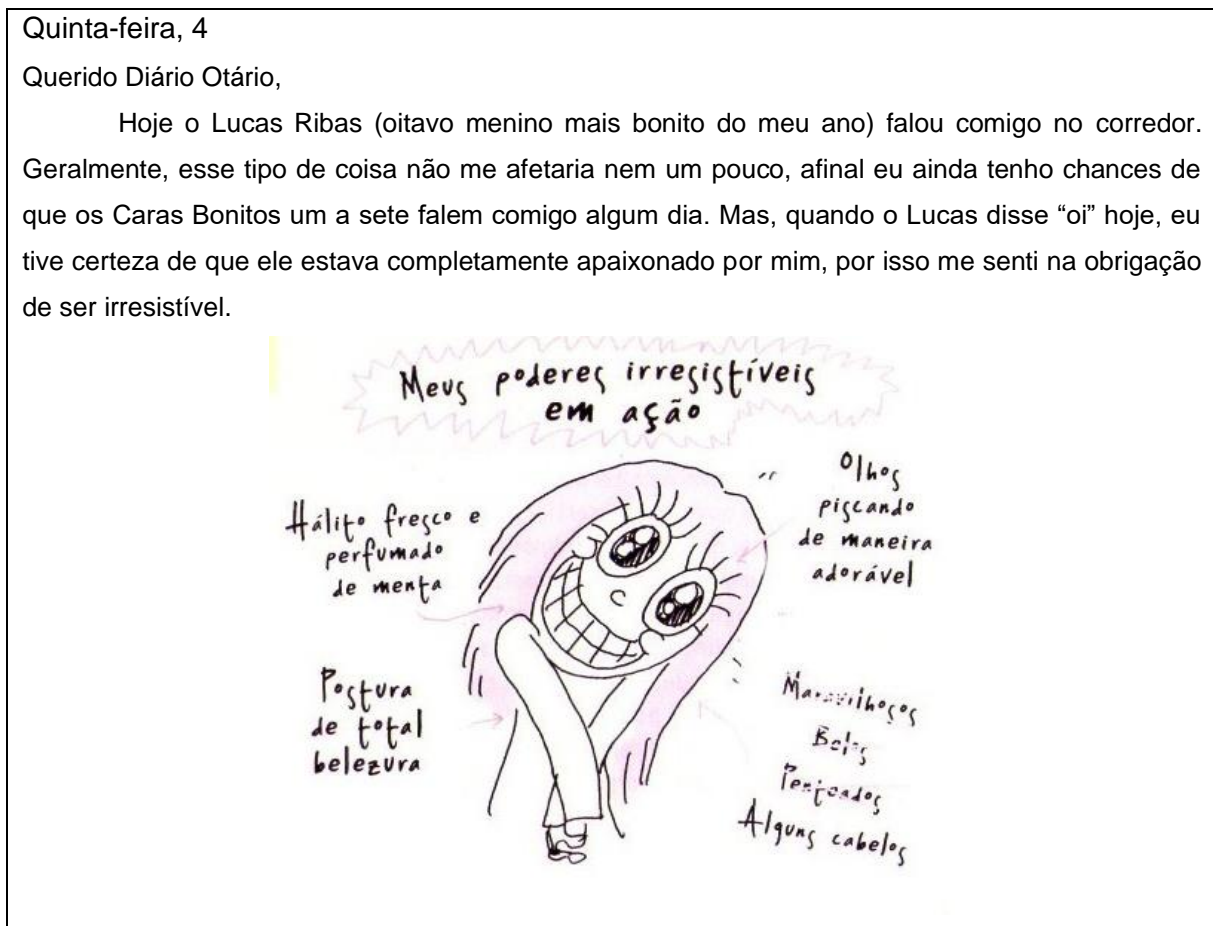 Quinta-feira, 4
Querido Diário Otário,
Hoje o Lucas Ribas (oitavo menino mais bonito do meu ano) falou comigo no corredor.
Geralmente, esse tipo de coisa não me afetaria nem um pouco, afinal eu ainda tenho chances de
que os Caras Bonitos um a sete falem comigo algum dia. Mas, quando o Lucas disse “oi” hoje, eu
tive certeza de que ele estava completamente apaixonado por mim, por isso me senti na obrigação
de ser irresistível.
Meus poderes irresistíveis
em ação
Hálito fresco e
perfumado
de menta
Olhos
piscando
de maneira
adorável
Postura
de total
belezura
Maravilhosos
Belos
Penteados
Alguns cabelos